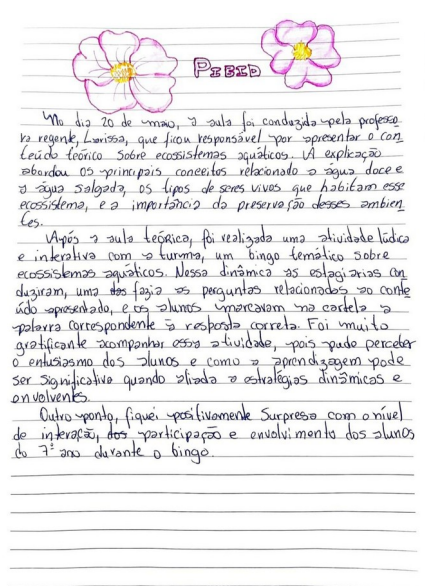 PIBID
No dia 20 de maio, a aula foi conduzida pela professo
ra regente, Larissa, que ficou responsável por apresentar o con
teúdo teórico sobre ecossistemas aquáticos. A explicação
abordou os principais conceitos relacionado a água doce e
a água salgada, os tipos de seres vivos que habitam esse
ecossistema, e a importância da preservação desses ambien
tes.
Após a aula teórica, foi realizada uma atividade lúdica
e interativa com a turma, um bingo temático sobre
ecossistemas aquáticos. Nessa dinâmica as estagiárias con
duziram, uma das fazia as perguntas relacionados ao conte
údo apresentado, e os alunos marcavam na cartela a
palavra correspondente à resposta correta. Foi muito
gratificante acompanhar essa atividade, pois pude perceber
o entusiasmo dos alunos e como a aprendizagem pode
ser significativa quando aliada a estratégias dinâmicas e
envolventes.
Outro ponto, fiquei positivamente surpresa com o nível
de interação, dos participação e envolvimento dos alunos
do 7º ano durante o bingo.